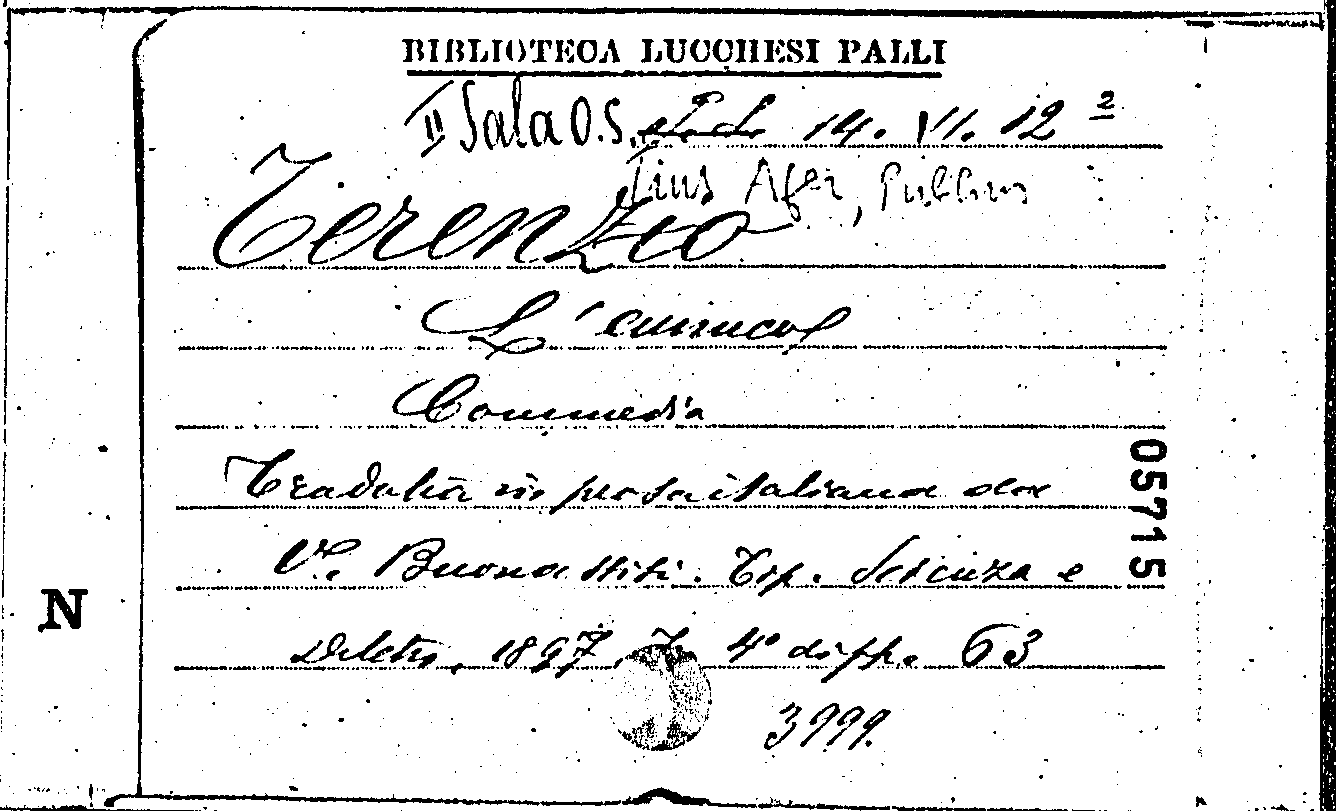 BIBLIOTECA LUCCHESI PALLI
II Sala O.S. 14. VI. 12 2
tius Afer, Publius
Terenzio
L'eunuco
Commedia
Tradotta in prosa italiana da
V. Buonastisi. Tip. Scienza e
Diletto, 1897. In 4° di pp. 63
3999.
05715
N